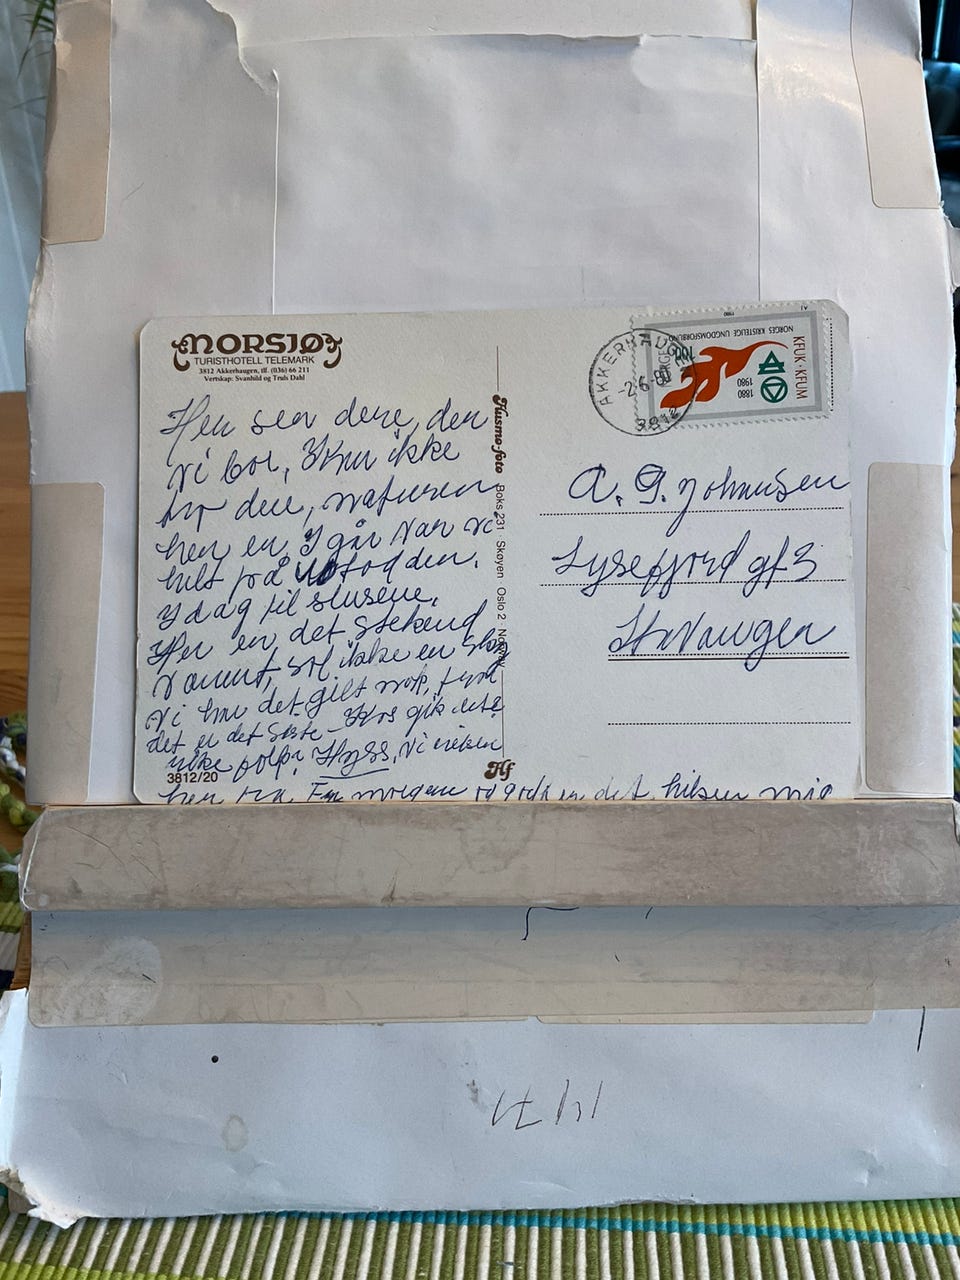 NORSJØ
TURISTHOTELL TELEMARK
3812 Akkerhaugen, tlf. (036) 66 211
Vertskap: Svanhild og Truls Dahl
Her ser dere, der
vi bor,
ikke
dere, naturen
her er, I går var vi
helt på Notodden.
I dag til slusene.
Her er det stekend
varmt, sol ikke en sky
vi har det gilt nok, tym
det er det siste - Kos gjik dette
ikke på Hyss, vi reiser
her fra. En morgen så godt er det, hilsen mig
3812/20
Husmo-foto Boks 231 · Skøyen · Oslo 2 · Norway
Hf
AKKERHAUGEN
-2.-6.80
3812
NORGES KRISTELIGE UNGDOMSFORBUND
KFUK-KFUM
1880
1980
100
NORGE
A. G. Johnnsen
Lysefjord gt 3
Stavanger